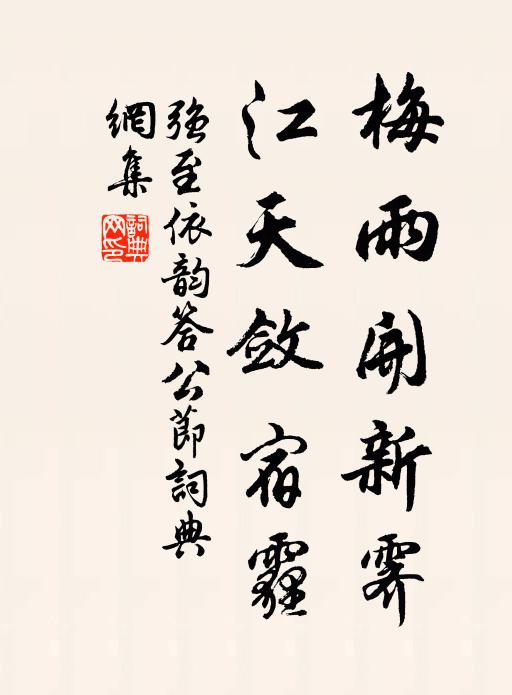 梅雨開新霽
江天斂宿霾
強至依韵答公節詞典
網集
詞典
网印